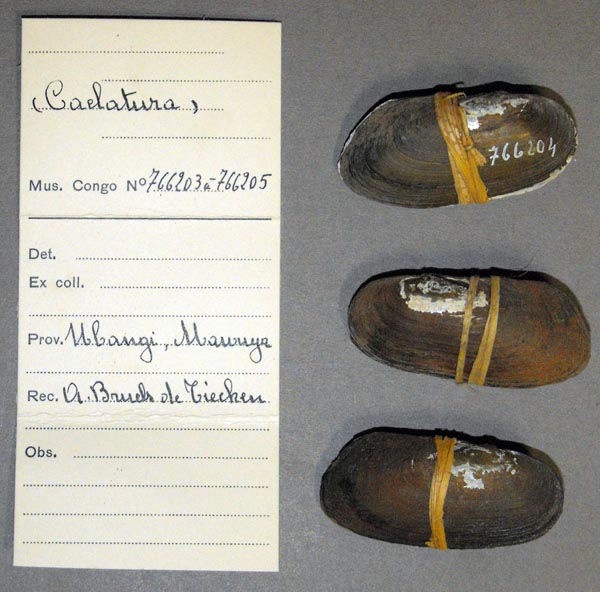 (Caelatura)
Mus. Congo Nº 766203 à 766205
Det.
Ex coll.
Prov. Ubangi,
Rec. A. Bruels de Tiecken
Obs.
766204